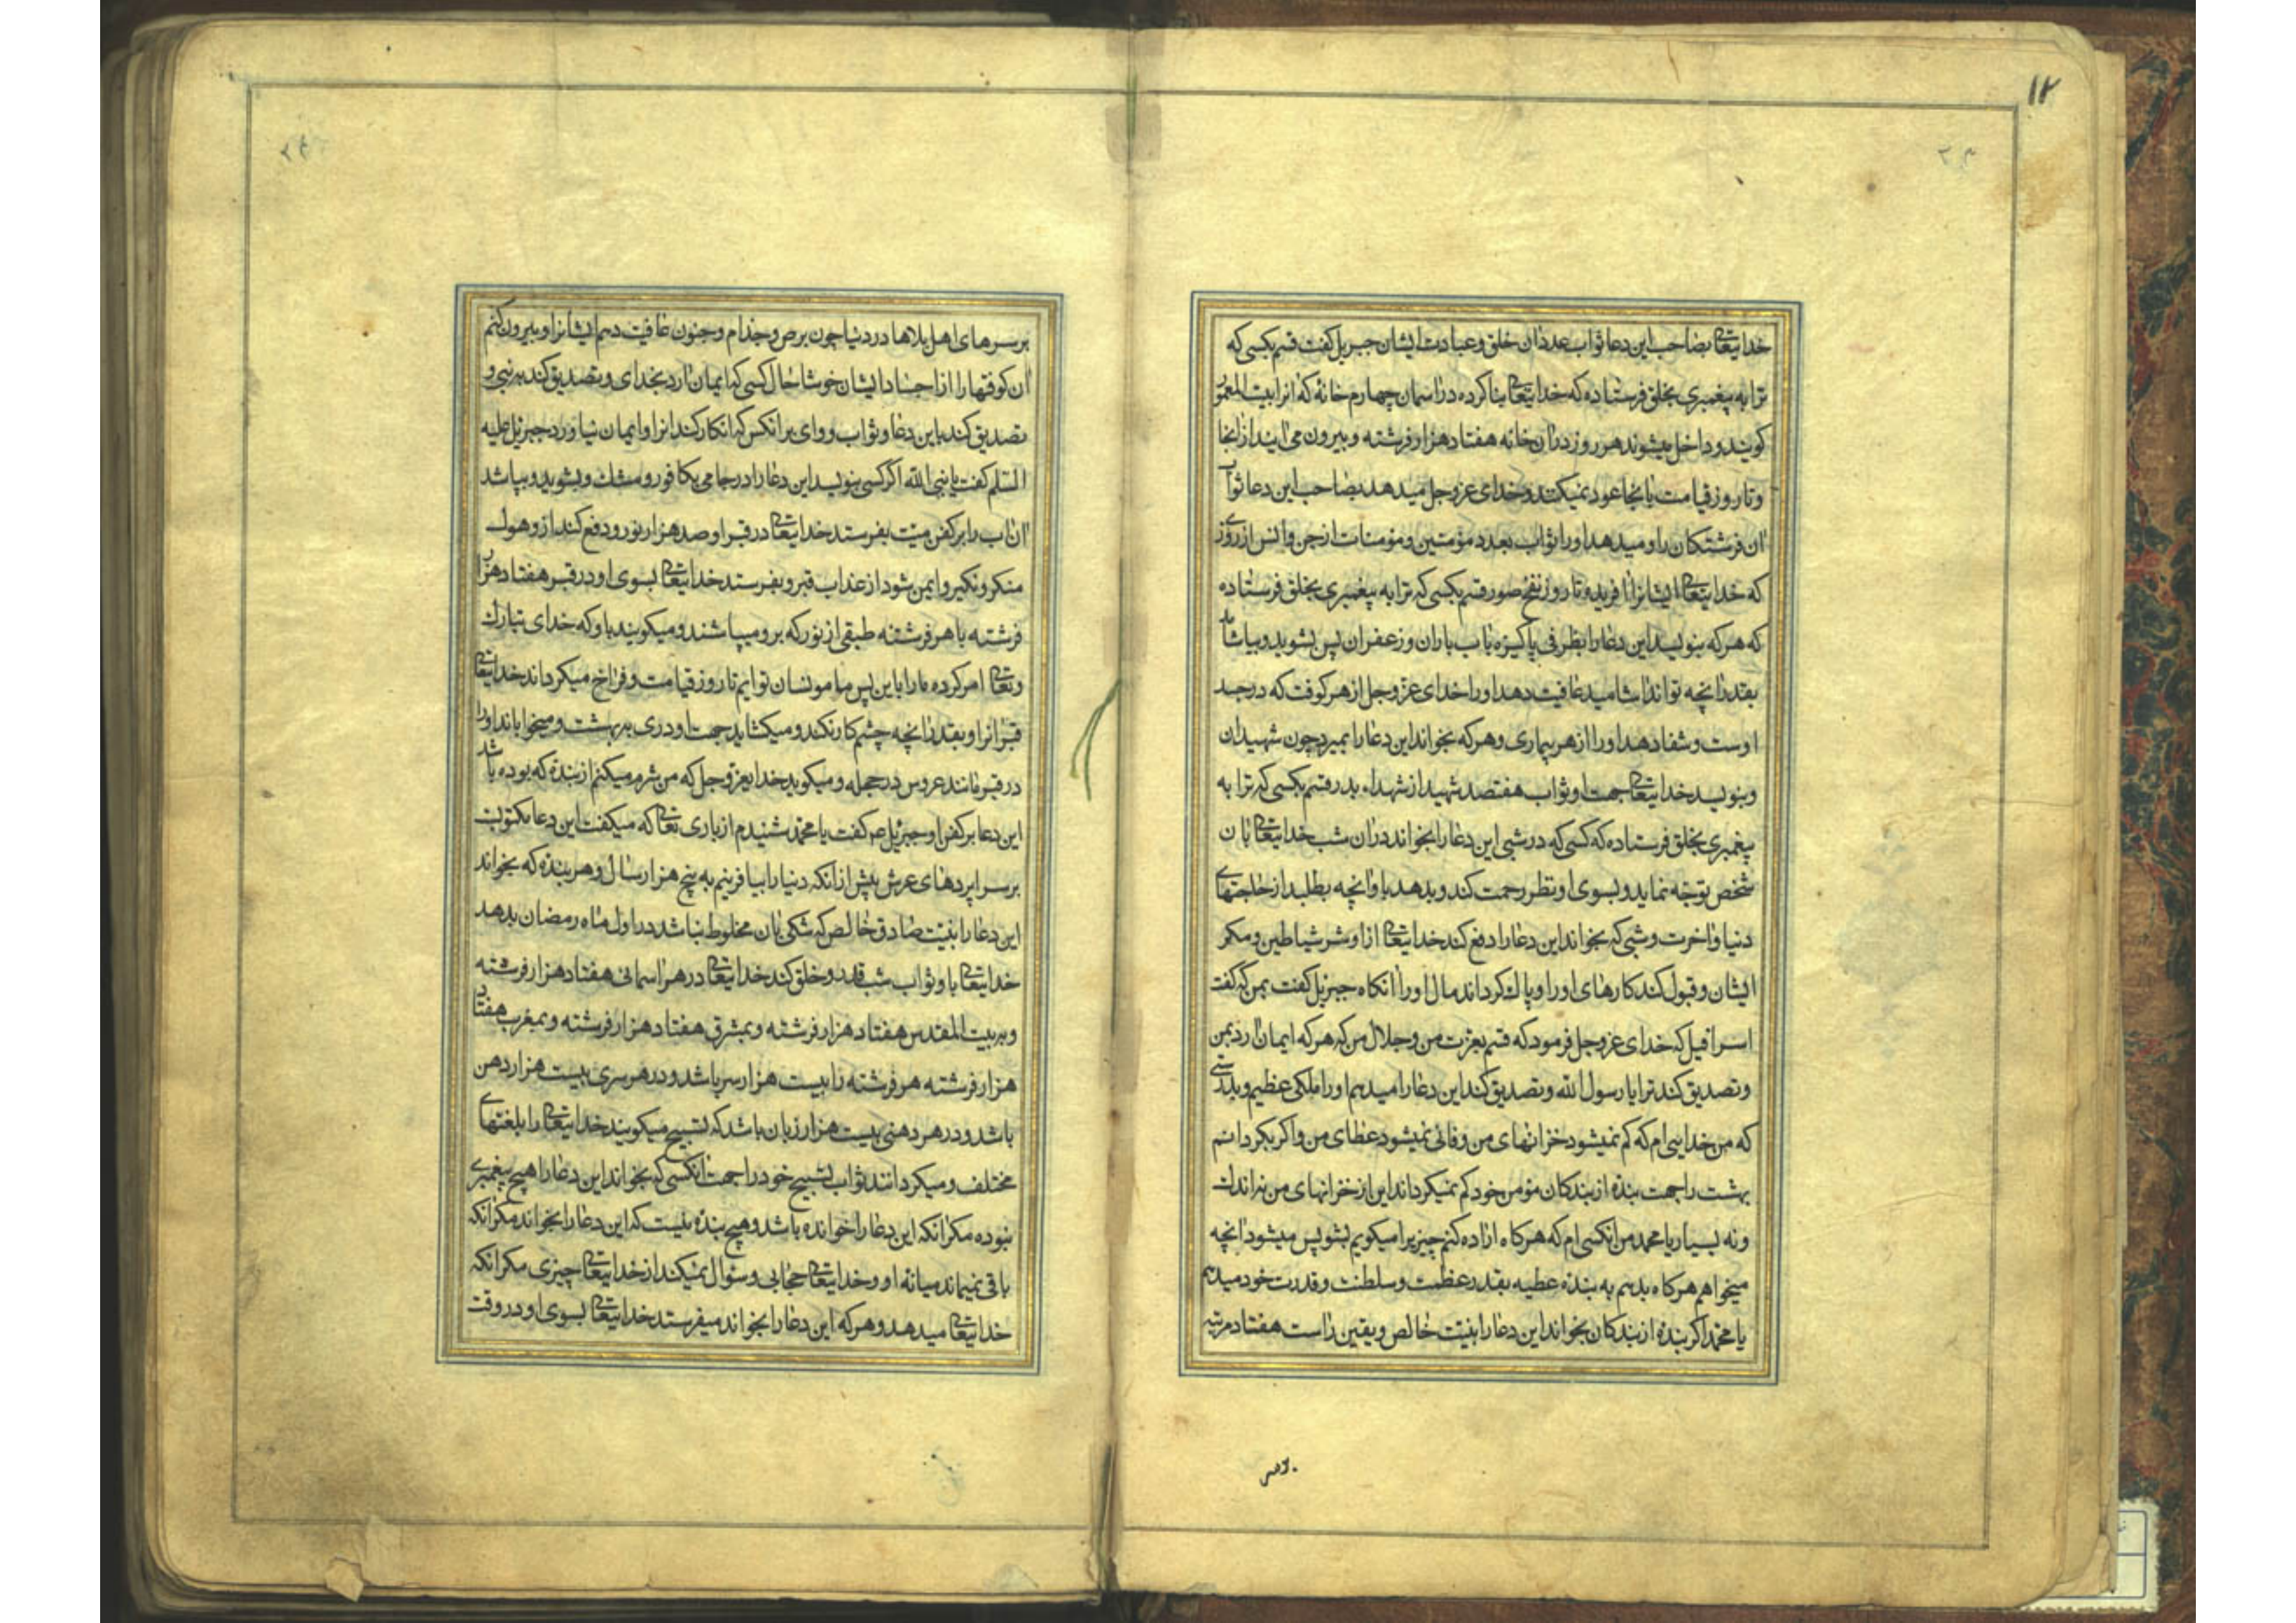 ۱۲
۲۳
خدایتعالی بصاحب این دعا ثواب عدد آن خلق و عبادت ایشان جبریل گفت قسم بکسی که
ترا به پیغمبری بخلق فرستاده که خدایتعالی بنا کرده در آسمان چهارم خانهٔ که آنرا بیت المعمور
گویند و داخل میشوند هر روز در آن خانه هفتاد هزار فرشته و بیرون می آیند از آنجا
و تا روز قیامت بآنجا عود نمیکنند و خدای عز و جل میدهد بصاحب این دعا ثواب
آن فرشتگان را و میدهد او را ثواب بعدد مؤمنین و مؤمنات از جن و انس از روزی
که خدایتعالی ایشانرا آفریده تا روز نفخ صور قسم بکسی که ترا به پیغمبری بخلق فرستاده
که هر که بنویسد این دعا را بظرفی پاکیزه بآب باران و زعفران پس بشوید و بیاشامد
بقدر آنچه تواند آشامید عافیت دهد او را خدای عز و جل از هر کوفت که در جسد
اوست و شفا دهد او را از هر بیماری و هر که بخواند این دعا را بمیرد چون شهیدان
و بنویسد خدایتعالی جهت او ثواب هفتصد شهید از شهداء بدر قسم بکسی که ترا به
پیغمبری بخلق فرستاده که کسی که در شبی این دعا را بخواند در آن شب خدایتعالی بآن
شخص توجّه نماید و بسوی او نظر رحمت کند و بدهد باو آنچه بطلبد از حاجتهای
دنیا و آخرت و شبی که بخواند این دعا را دفع کند خدایتعالی از او شر شیاطین و مکر
ایشان و قبول کند کارهای او را و پاک گرداند مال او را آنگاه جبرئیل گفت بمن که گفت
اسرافیل که خدای عز و جل فرمود که قسم بعزت من و جلال من که هر که ایمان آرد بمن
و تصدیق کند ترا یا رسول الله و تصدیق کند این دعا را میدهم او را ملکی عظیم و بدرستی
که من خدایی ام که کم نمیشود خزانهای من و فانی نمیشود عطای من و اگر بگردانم
بهشت را جهت بندهٔ از بندگان مؤمن خود کم نمیگرداند این از خزانهای من نه اندک
و نه بسیار یا محمد من آنکسی ام که هرگاه اراده کنم چیزیرا میگویم بشو پس میشود آنچه
میخواهم هرگاه بدهم به بندهٔ عطیه بقدر عظمت و سلطنت و قدرت خود میدهم
یا محمد اگر بندهٔ از بندگان بخواند این دعا را بنیّت خالص و یقین راست هفتاد مرتبه
بر سر
بر سرهای اهل بلاها در دنیا چون برص و جذام و جنون عافیت دهم ایشانرا و بیرون کنم
آن کوفتها را از اجساد ایشان خوشا حال کسی که ایمان آرد بخدای و تصدیق کند به نبی و
تصدیق کند باین دعا و ثواب و وای بر آنکس که انکار کند آنرا و ایمان نیاورد جبرئیل علیه
السّلم گفت یا نبی الله اگر کسی بنویسد این دعا را در جامی بکافور و مشک و بشوید و بپاشد
آن آب را بر کفن میّت بفرستد خدایتعالی در قبر او صد هزار نور و دفع کند از و هول
منکر و نکیر و ایمن شود از عذاب قبر و بفرستد خدایتعالی بسوی او در قبر هفتاد هزار
فرشته با هر فرشته طبقی از نور که برو میپاشند و میگویند باو که خدای تبارک
و تعالی امر کرده ما را باین پس ما مونسان توایم تا روز قیامت و فراخ میگرداند خدایتعالی
قبر آنرا و بقدر آنچه چشم کار نکند و میکشاید جهت او دری به بهشت و میخواباند او را
در قبر مانند عروس در حجله و میگوید خدایعز و جل که من شرم میکنم از بندهٔ که بوده باشد
این دعا بر کفن او جبرئیل عم گفت یا محمد شنیدم از باری تعالی که میگفت این دعا مکتوبست
بر سراپردهای عرش پیش از آنکه دنیا را بیافرینم به پنج هزار سال و هر بندهٔ که بخواند
این دعا را بنیّت صادق خالص که شکی بآن مخلوط نباشد در اول ماه رمضان بدهد
خدایتعالی باو ثواب شب قدر و خلق کند خدایتعالی در هر آسمانی هفتاد هزار فرشته
و به بیت المقدس هفتاد هزار فرشته و بمشرق هفتاد هزار فرشته و بمغرب هفتاد
هزار فرشته هر فرشته را بیست هزار سر باشد و در هر سری بیست هزار دهن
باشد و در هر دهنی بیست هزار زبان باشد که تسبیح میگویند خدایتعالی را بلغتهای
مختلف و میگردانند ثواب تسبیح خود را جهت آنکسی که بخواند این دعا را هیچ پیغمبری
نبوده مگر آنکه این دعا را خوانده باشد و هیچ بندهٔ نیست که این دعا را بخواند مگر آنکه
باقی نمیماند میانه او و خدایتعالی حجابی و سؤال نمیکند از خدایتعالی چیزی مگر آنکه
خدایتعالی میدهد و هر که این دعا را بخواند میفرستد خدایتعالی بسوی او در وقت